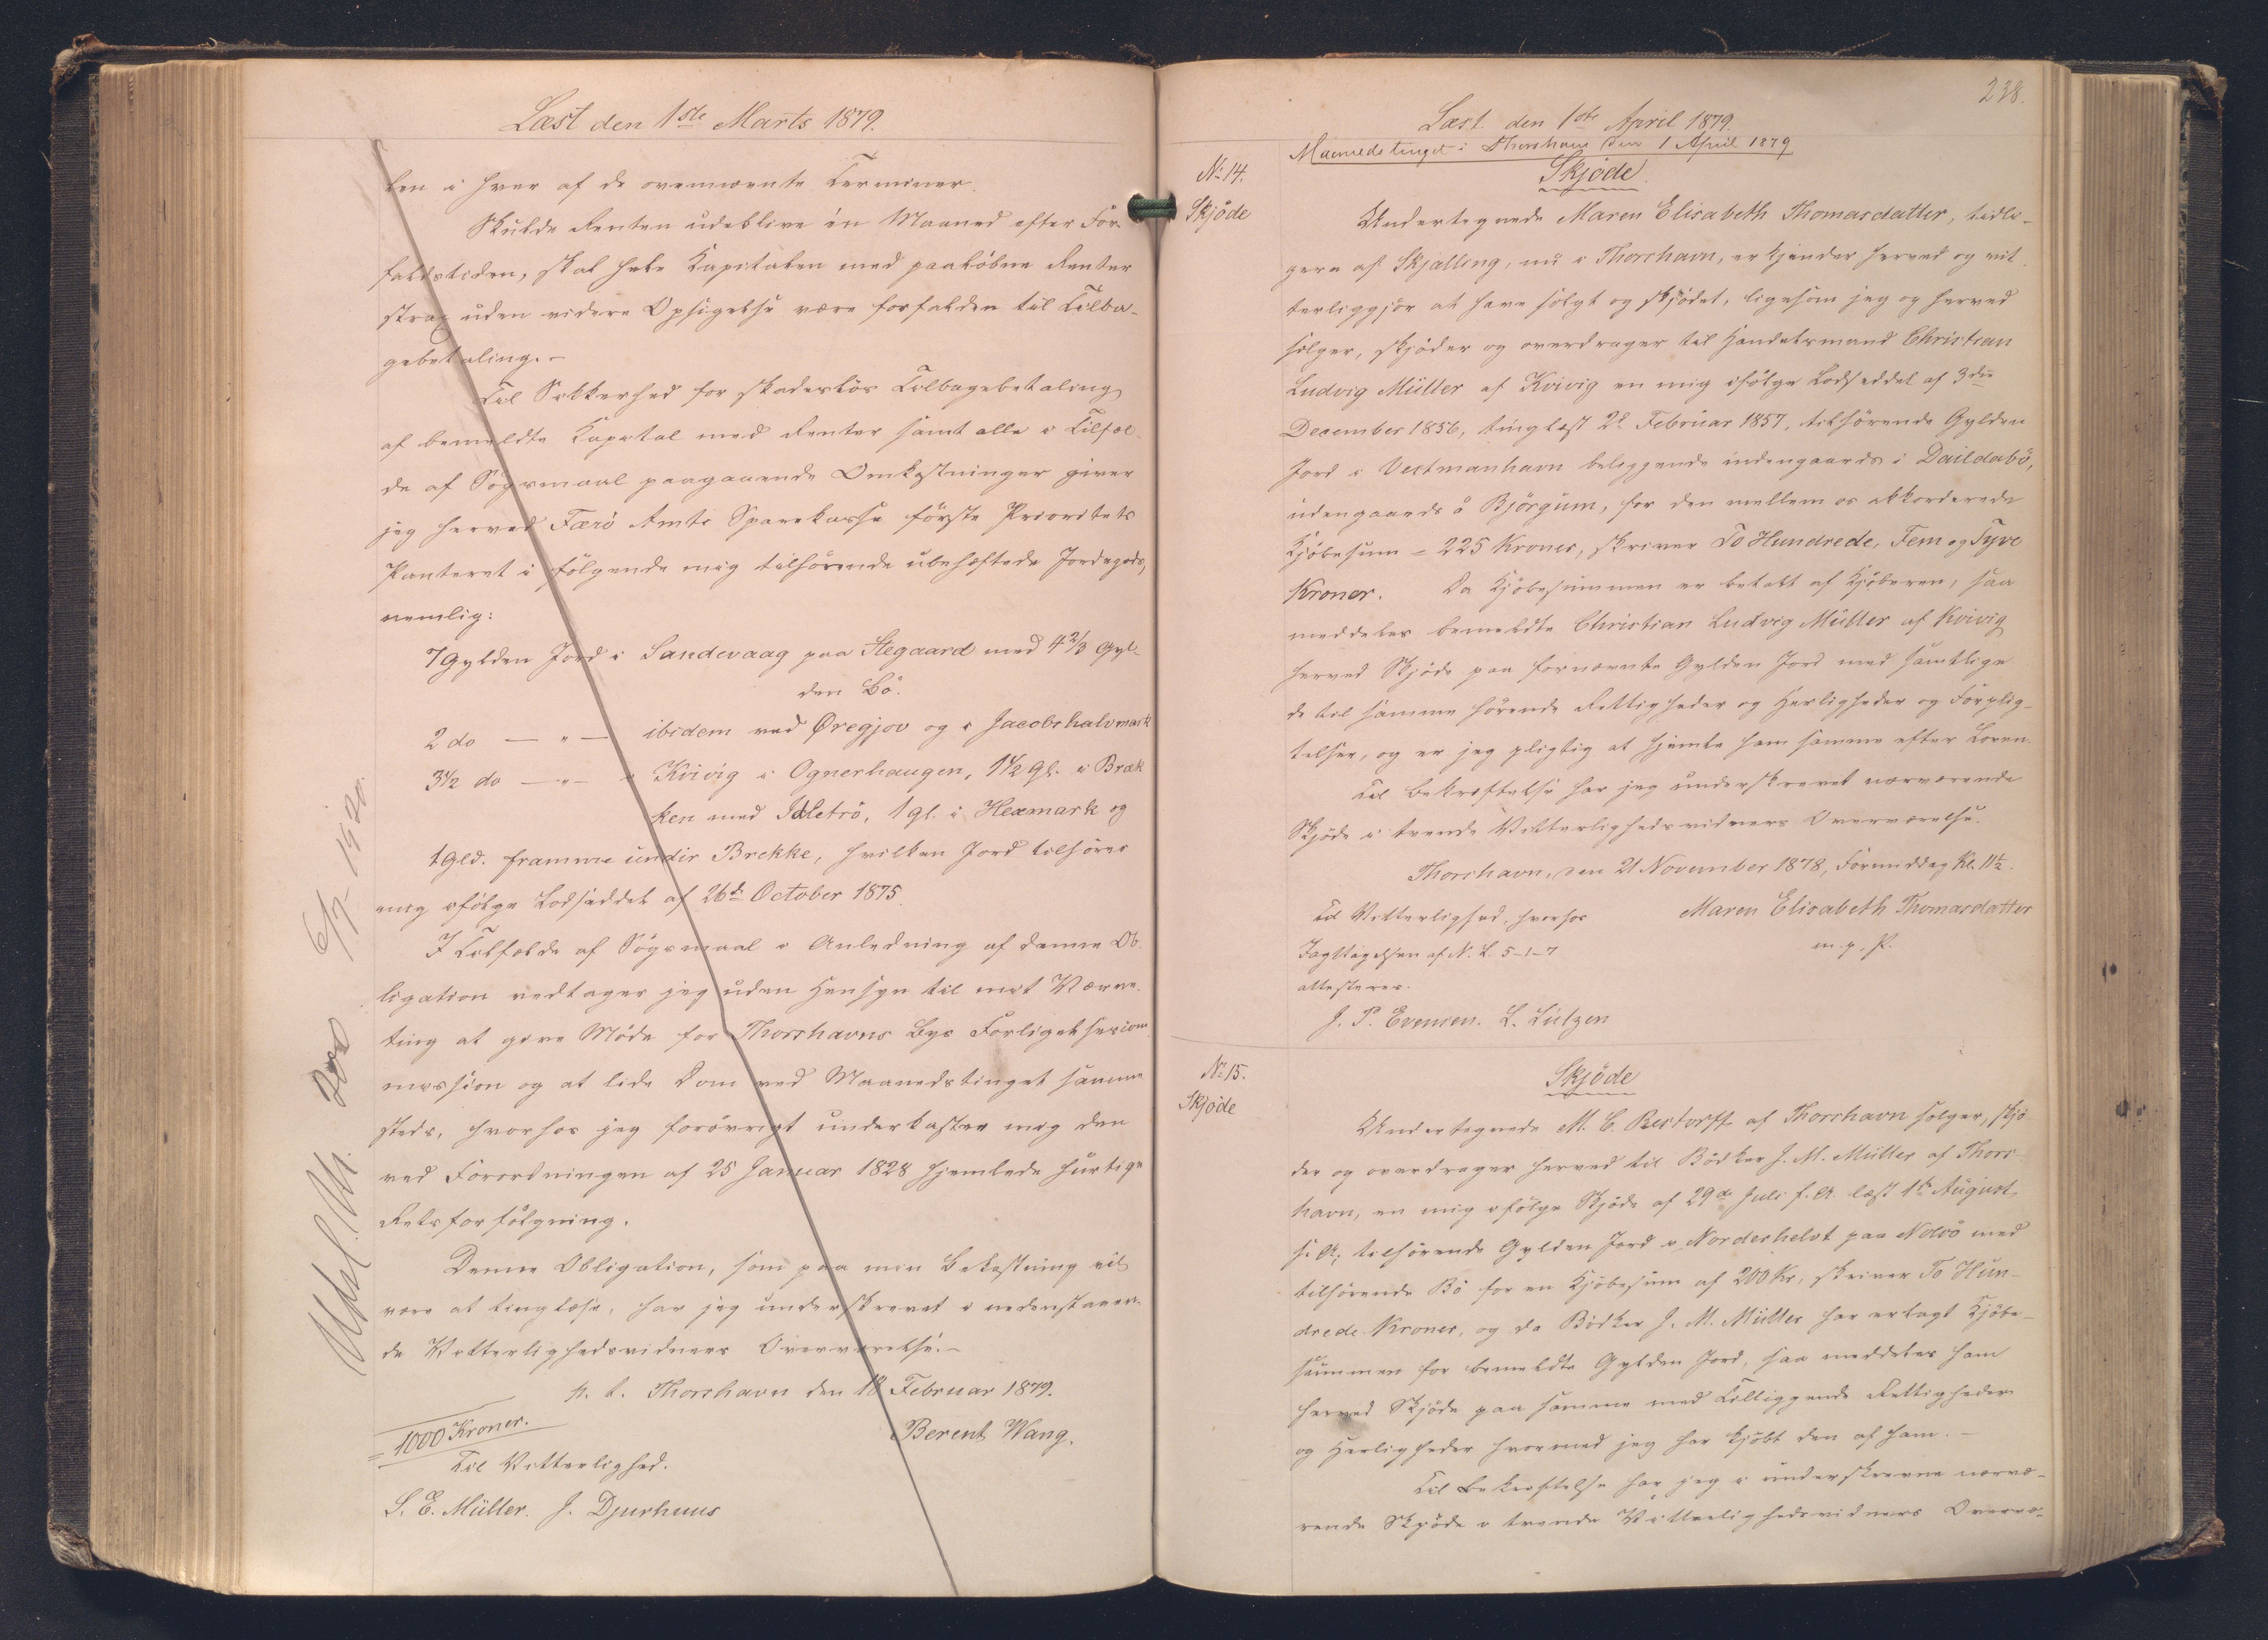 Læst den 1ste Marts 1879.
len i hver af de ovennævnte Terminer.
Skulde Renten udeblive én Maaned efter For-
faldstiden, skal hele Kapitalen med paaløbne Renter
strax uden videre Opsigelse være forfalden til Tilba-
gebetaling. –
Til Sikkerhed for skadesløs Tilbagebetaling
af bemeldte Kapital med Renter samt alle i Tilfæl-
de af Søgsmaal paagaaende Omkostninger giver
jeg herved Færö Amts Sparekasse første Prioritets
Panteret i følgende mig tilhørende ubehæftede Jordegods,
nemlig:
7 Gylden Jord i Sandevaag paa Stegaard med 4 2/3 Gyl-
den Bö.
2 do — " — ibidem ved Øregjov og i Jacobshalvmark
3 1/2 do — " — i Kvivig i Ognerhaugen, 1 1/2 gl. i Brek
ken med Idletrö, 1 gl. i Hexmark og
1 Gld. framme undir Brekke, hvilken Jord tilhører
mig ifølge Lodseddel af 26de October 1875.
I Tilfælde af Søgsmaal i Anledning af denne Ob-
ligation vedtager jeg uden Hensyn til mit Værne-
ting at give Møde for Thorshavns Byes Forligelseskom
mission og at lide Dom ved Maanedstinget samme
steds, hvorhos jeg forøvrigt underkaster mig den
ved Forordningen af 25 Januar 1828 hjemlede hurtige
Retsforfølgning.
Denne Obligation, som paa min Bekostning vil
være at tinglæse, har jeg underskrevet i nedenstaaen-
de Vitterlighedsvidners Overværelse. –
p. t. Thorshavn den 18 Februar 1879.
= 1000 Kroner.
Berent Wang.
Til Vitterlighed.
S. E. Müller. J. Djurhuus
6/7 1920.
238.
Læst den 1ste April 1879.
Maanedstinget i Thorshavn den 1 April 1879
No 14.
Skjöde
Skjöde.
Undertegnede Maren Elisabeth Thomasdatter, tidli-
gere af Skjælling, nu i Thorshavn, erkjender herved og vit-
terliggjør at have solgt og skjødet, ligesom jeg og herved
sælger, skjøder og overdrager til Handelsmand Christian
Ludvig Müller af Kvivig en mig ifølge Lodseddel af 3die
December 1856, tinglæst 2d Februar 1857, tilhørende Gylden
Jord i Vestmanhavn beliggende indengaards i Daildabö,
udengaards å Björgum, for den mellem os akkorderede
Kjøbesum = 225 Kroner, skriver To Hundrede, Fem og Tyve
Kroner. Da Kjøbesummen er betalt af Kjøberen, saa
meddeles bemeldte Christian Ludvig Müller af Kvivig
herved Skjøde paa fornævnte Gylden Jord med samtlige
de til samme hørende Rettigheder og Herligheder og Forplig-
telser, og er jeg pligtig at hjemle ham samme efter Loven.
Til Bekræftelse har jeg underskrevet nærværende
Skjøde i tvende Vitterlighedsvidners Overværelse.
Thorshavn, den 21 November 1878, Formiddag Kl. 11 1/2.
Til Vitterlighed, hvorhos
Maren Elisabeth Thomasdatter
Iagttagelsen af N. L. 5-1-7
m. f. P.
attesteres.
J. P. Evensen. L. Lützen
No 15.
Skjöde
Skjöde
Undertegnede M. C. Restorff af Thorshavn sælger, skjö-
der og overdrager herved til Bödker J. M. Müller af Thors-
havn, en mig ifølge Skjøde af 29de Juli f. A. læst 1ste August
s. A. tilhørende Gylden Jord i Norderhelvt paa Nolsö med
tilhørende Bö for en Kjøbesum af 200 Kr, skriver To Hun-
drede Kroner, og da Bödker J. M. Müller har erlagt Kjøbe-
summen for bemeldte Gylden Jord, saa meddeles ham
herved Skjøde paa samme med Tilliggende Rettigheder
og Herligheder hvormed jeg har kjøbt den af ham. –
Til Bekræftelse har jeg i underskrevne nærvæ-
rende Skjøde i tvende Vitterlighedsvidners Overvæ-